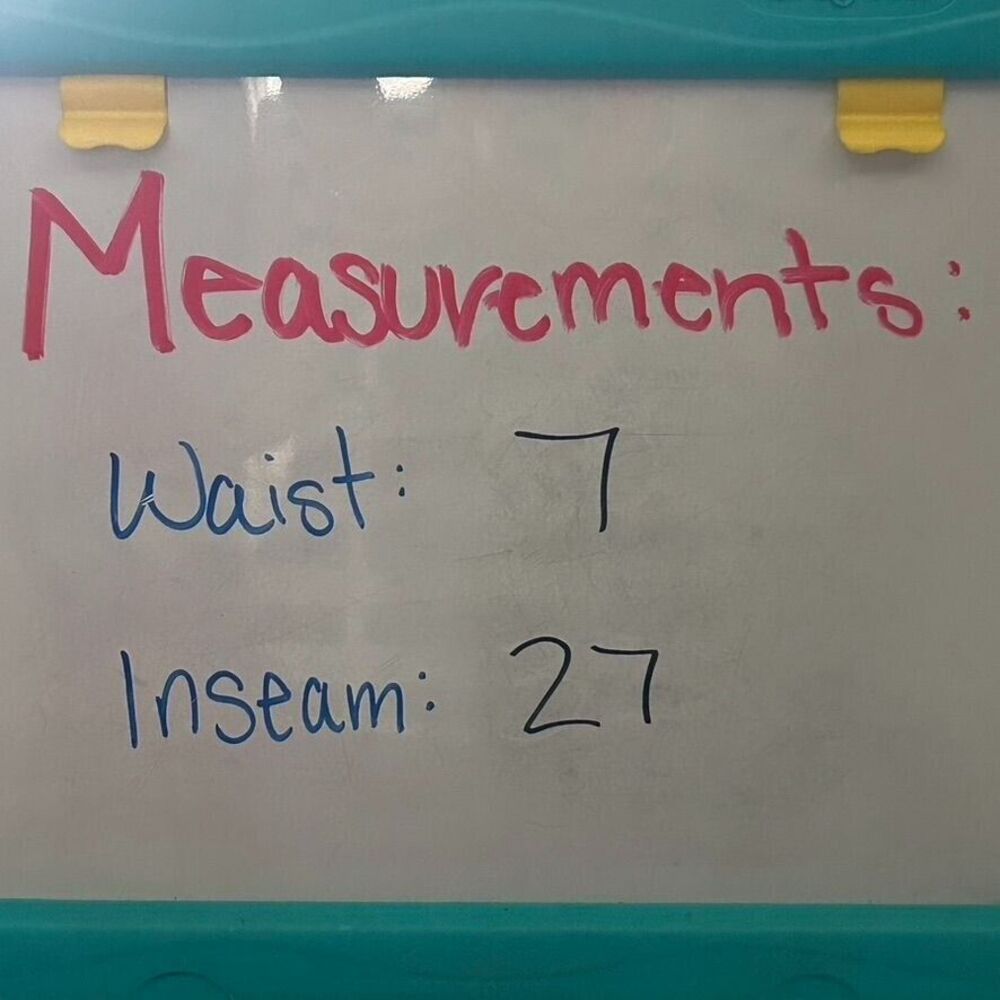 Measurements:
Waist: 7
Inseam: 27